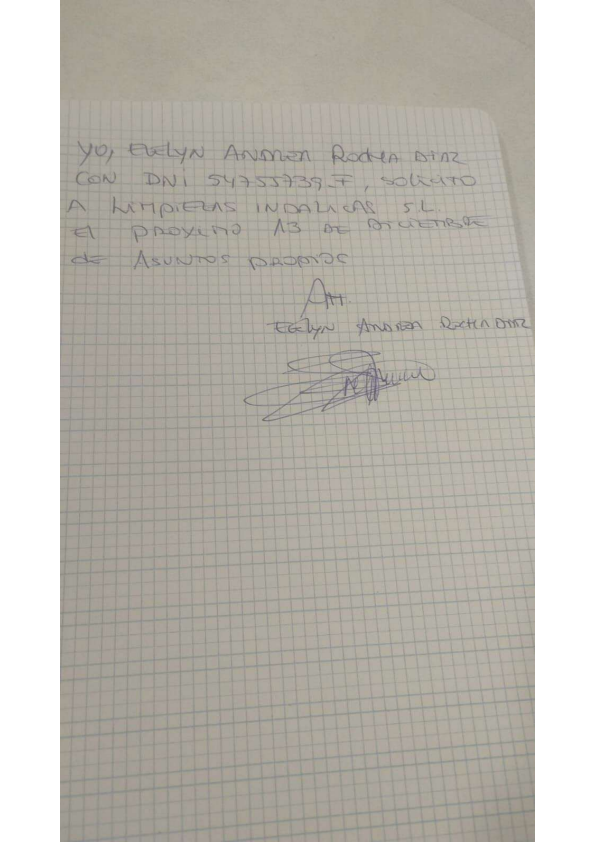 YO, EVELYN ANDREA ROCHA DIAZ
CON DNI 54755739-F, SOLICITO
A LIMPIEZAS INDALICAS S.L.
El PROXIMO 13 DE DICIEMBRE
de ASUNTOS PROPIOS
Att.
EVELYN ANDREA ROCHA DIAZ